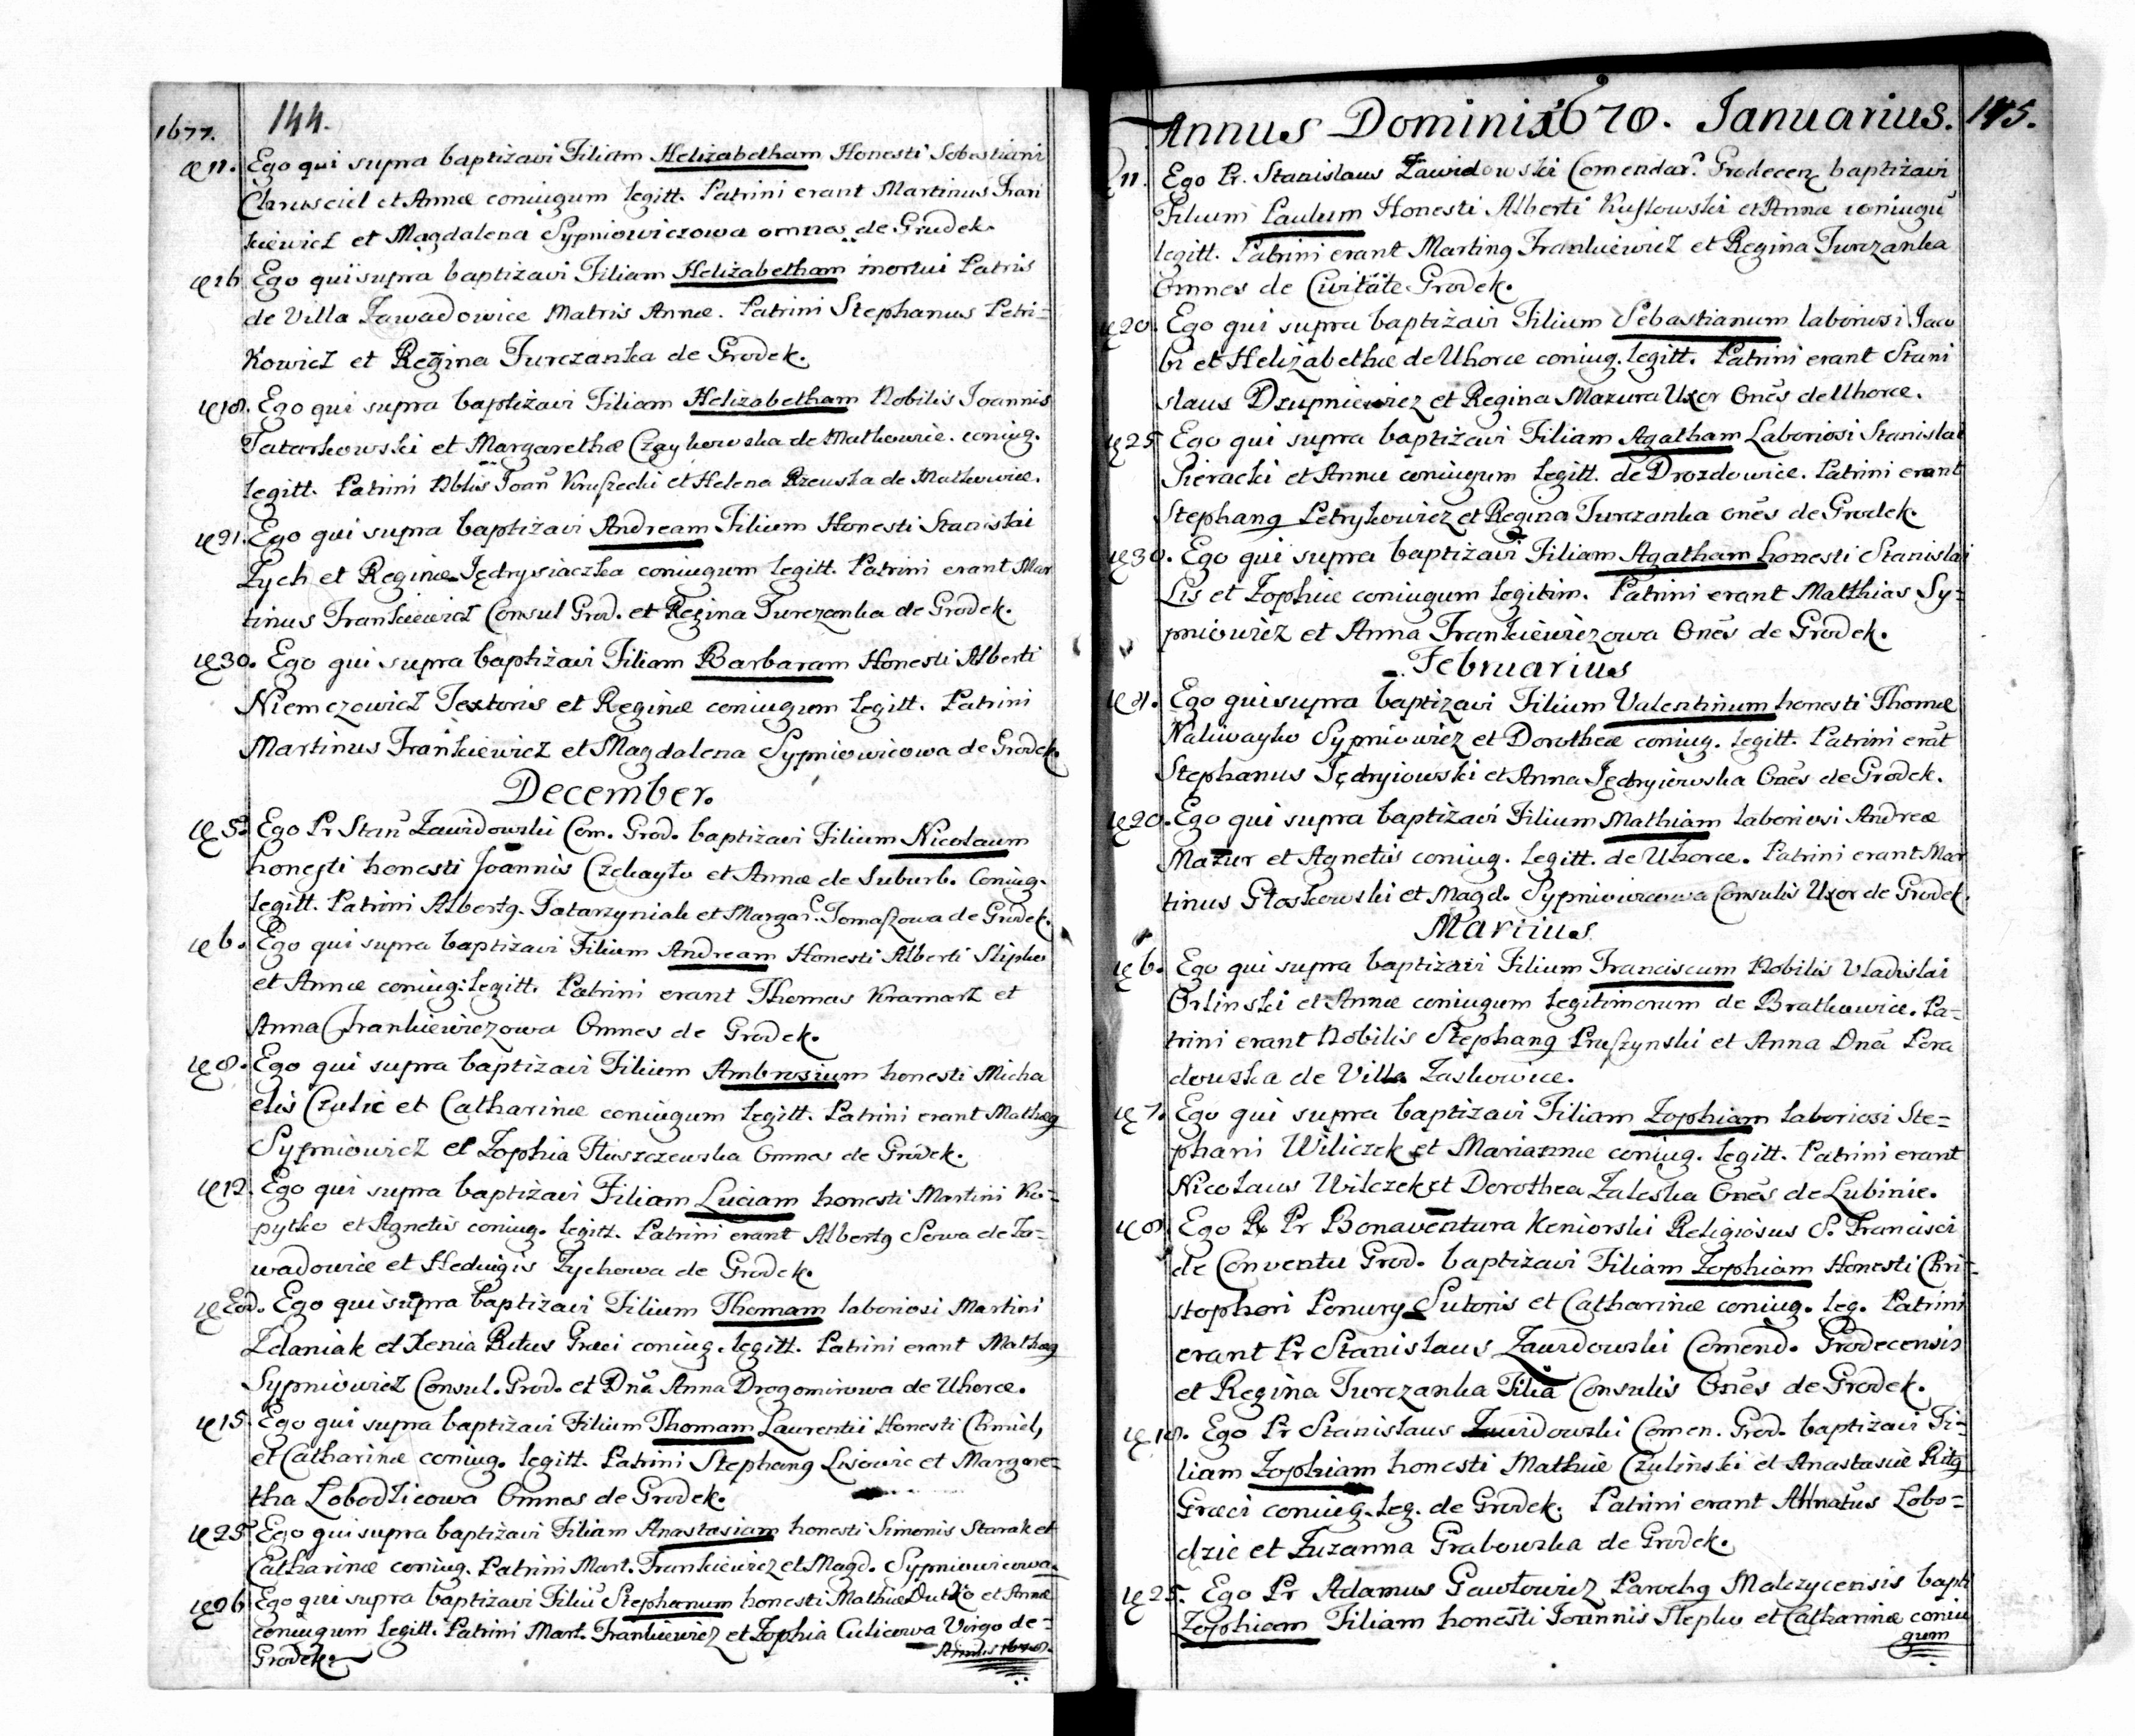 1677.
144.
11. Ego qui supra baptizavi Filiam Helizabetham Honesti Sebastiani
Chrusciel et Annæ coniugum legitt. Patrini erant Martinus Fran
kiewicz et Magdalena Sypniowiczowa omnes de Grudek.
16 Ego qui supra baptizavi Filiam Helizabetham mortui Patris
de Villa Zawadowice Matris Annæ. Patrini Stephanus Petri=
kowicz et Regina Turczanka de Grodek.
18. Ego qui supra baptizavi Filiam Helizabetham Nobilis Joannis
Tatarkowski et Margarethæ Czaykowska de Malkowic. coniug.
legitt. Patrini Nblis Joan̄ Kruszecki et Helena Rzewska de Malkowice.
21. Ego qui supra baptizavi Andream Filium Honesti Stanislai
Zych et Reginæ Jędrysiaczka coniugum legitt. Patrini erant Mar
tinus Frankiewicz Consul Grod. et Regina Turczanka de Grodek.
30. Ego qui supra baptizavi Filiam Barbaram Honesti Alberti
Niemczowicz Textoris et Reginæ coniugum legitt. Patrini
Martinus Frankiewicz et Magdalena Sypniowicowa de Grodek.
December.
5. Ego Pr Stan̄ Zawidowski Com. Grod. baptizavi Filium Nicolaum
honesti honesti Joannis Czekayło et Annæ de Suburb. Coniug.
legitt. Patrini Albertg. Tatarzyniak et Margar. Tomaszowa de Grodek.
6. Ego qui supra baptizavi Filium Andream Honesti Alberti Slipko
et Annæ coniug: legitt. Patrini erant Thomas Kramarz et
Anna Frankiewiczowa Omnes de Grodek.
8. Ego qui supra baptizavi Filium Ambrosium honesti Micha
elis Czulic et Catharinæ coniugum legitt. Patrini erant Mathæg
Sypniowicz et Zophia Tłuszczewska Omnes de Grodek.
12. Ego qui supra baptizavi Filiam Luciam honesti Martini Ko=
pytko et Agnetis coniug. legitt. Patrini erant Albertg Serwa de Za=
wadowice et Hedvigis Zychowa de Grodek.
Eod. Ego qui supra baptizavi Filium Thomam laboriosi Martini
Zdaniak et Xenia Ritus Græci coniug. legitt. Patrini erant Mathæg
Sypniowicz Consul. Grod. et Dn̄a Anna Dragomirowa de Uherce.
15. Ego qui supra baptizavi Filium Thomam Laurentii Honesti Chmiel,
et Catharinæ coniug. legitt. Patrini Stephang Lisowic et Margare=
tha Lobodzicowa Omnes de Grodek.
25 Ego qui supra baptizavi Filiam Anastasiam honesti Simonis Starak et
Catharinæ coniug. Patrini Mart. Frankiewicz et Magd. Sypniowicowa.
26 Ego qui supra baptizavi Filiū Stephanum honesti Mathiæ Dutko et Annæ
coniugum legitt. Patrini Mart. Frankiewicz et Zophia Culicowa Virgo de=
Grodek.
Annus 1678.
Annus Domini 1678. Ianuarius. 145.
11. Ego Pr. Stanislaus Zawidowski Comendar. Grodecen baptizavi
Filium Paulum Honesti Alberti Kusłowski et Annæ coniugū
legitt. Patrini erant Marting Frankiewicz et Regina Turczanka
Omnes de Civitate Grodek.
20. Ego qui supra baptizavi Filium Sebastianum laboriosi Jaco
bi et Helizabethæ de Uhorce coniug. legitt. Patrini erant Stani
slaus Dzupniewicz et Regina Mazura Uxor Onēs de Uhorce.
25 Ego qui supra baptizavi Filiam Agatham Laboriosi Stanislai
Sieracki et Annæ coniugum legitt. de Drozdowice. Patrini erant
Stephang Petrykowicz et Regina Turczanka onēs de Grodek.
30. Ego qui supra baptizavi Filiam Agatham honesti Stanislai
Lis et Zophiæ coniugum legitim. Patrini erant Matthias Sy=
pniowicz et Anna Frankiewiczowa Onēs de Grodek.
Februarius
4. Ego qui supra baptizavi Filium Valentinum honesti Thomæ
Naliwayko Sypniowicz et Dorotheæ coniug. legitt. Patrini erāt
Stephanus Jędryiowski et Anna Jędryiowska Onēs de Grodek.
20. Ego qui supra baptizavi Filium Mathiam laboriosi Andreæ
Mazur et Agnetis coniug. legitt. de Uhorce. Patrini erant Mar
tinus Głoskowski et Magd. Sypniowicowa Consulis Uxor de Grodek.
Martius
6. Ego qui supra baptizavi Filium Franciscum Nobilis Vladislai
Orlinski et Annæ coniugum legitimorum de Bratkowice. Pa=
trini erant Nobilis Stephang Pruszynski et Anna Dnā Pora
dowska de Villa Zaskowice.
7. Ego qui supra baptizavi Filiam Zophiam laboriosi Ste=
phani Wilczek et Mariannæ coniug. legitt. Patrini erant
Nicolaus Wilczek et Dorothea Zaleska Onēs de Lubinie.
8. Ego R Pr Bonaventura Keniorski Religiosus S. Francisci
de Conventu Grod. baptizavi Filiam Zophiam Honesti Chri=
stophori Ponury Sutoris et Catharinæ coniug. leg. Patrini
erant Pr Stanislaus Zawidowski Comend. Grodecensis
et Regina Turczanka Filia Consulis Onēs de Grodek.
18. Ego Pr Stanislaus Zawidowski Comen. Grod. baptizavi Fi=
liam Zophiam honesti Mathiæ Czulinski et Anastasiæ Ritg
Græci coniug. leg. de Grodek. Patrini erant Lobo=
dzic et Zuzanna Grabowska de Grodek.
25. Ego Pr Adamus Gawłowicz Parochg Malczycensis bapti
Zophiam Filiam honesti Joannis Slepko et Catharinæ coniu
gum